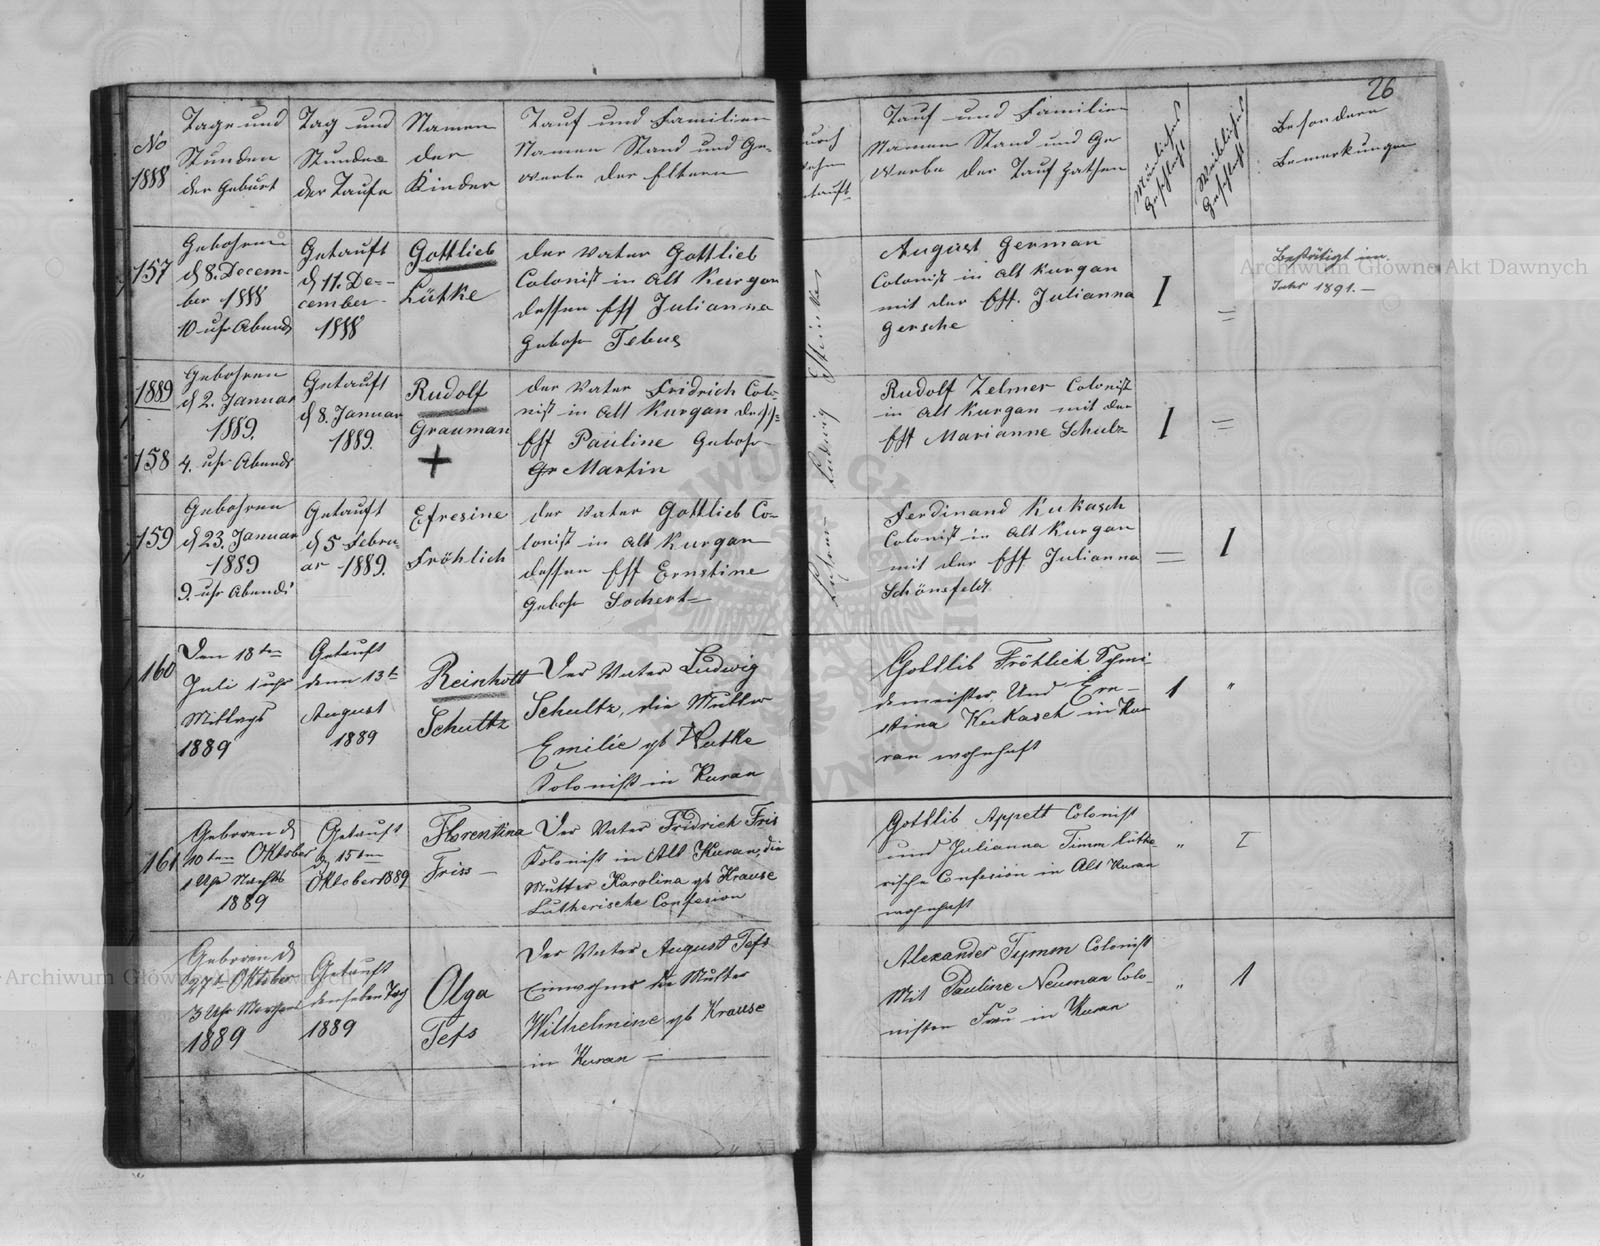 26
No
1888
Tage und
Stunden
der Geburt
Tag und
Stunde
der Taufe
Namen
der
Kinder
Tauf und Familien
Namen Stand und Ge-
werbe der Eltern
durch
wehn
getauft
Tauf und Familien
Namen Stand und Ge
werbe der Tauf Pathen
Mänliches
Geschlecht
Weibliches
Geschlecht
Besondere
Bemerkungen
157
Gebohren
d 8. Decem-
ber 1888
10 uhr Abends
Getauft
d 11. De-
cember
1888
Gottlieb
Lütke
der Vater Gottlieb
Colonist in Alt Kurgan
dessen Eff Julianna
Gebohr Tebus
August German
Colonist in Alt Kurgan
mit der Eff. Julianna
Gersche
1
=
Bestätigt im
Jahr 1891. -
1889
158
Gebohren
d 2. Januar
1889.
4. uhr Abends
Getauft
d 8. Januar
1889.
Rudolf
Grauman
+
der Vater Fridrich Colo-
nist in Alt Kurgan dess-
Eff Pauline Gebohr
Gr Martin
Ludwig
Rudolf Zelmer Colonist
in Alt Kurgan mit der
Eff Marianne Schulz
1
=
159
Gebohren
d 23. Januar
1889
9. uhr Abends
Getauft
d 5 Febru-
ar 1889.
Efresine
Fröhlich
der Vater Gottlieb Co-
lonist in Alt Kurgan
dessen Eff Ernstine
Gebohr Sochert
Ferdinand Kukasch
Colonist in Alt Kurgan
mit der Eff Julianna
Schönsfeldt
=
1
160
Den 18ten
Juli 1 uhr
Mittags
1889
Getauft
denn 13t
August
1889
Reinholt
Schultz
Der Vater Ludwig
Schultz, die Mutter
Emilie gb Wutke
Kolonist in Kuran
Gottlib Fröhlich Schmi-
demeister Und Ern-
stina Kukasch in Ku-
ran wohnhaft
1
"
161
Geboren d
10ten Oktober
1 Uhr Nachts
1889
Getauft
d 15ten
Oktober 1889
Florentina
Friss -
Der Vater Fridrich Fris
Kolonist in Alt Kuran, die
Mutter Karolina gb Krause
Lutherische Confesion
Gottlib Appelt Colonist
und Julianna Timm luthe
rische Confesion in Alt Kuran
wohnhaft
"
I
Geboren d
27t Oktober
3 Uhr Morgens
1889
Getauft
denselben Tag
1889
Olga
Tefs
Der Vater August Tefs
Einwohner die Mutter
Wilhelmine gb Krause
in Kuran
Alexander Tymm Colonist
Mit Pauline Neuman Colo-
nisten Frau in Kuran
"
1
Archiwum Główne Akt Dawnych
Archiwum Główne Akt Dawnych
ARCHIWUM GŁÓWNE AKT DAWNYCH